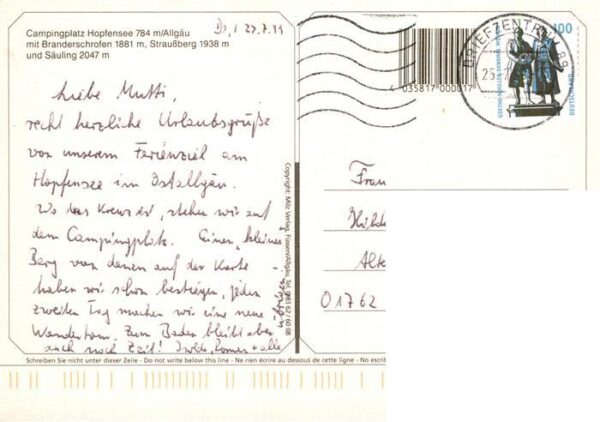 Campingplatz Hopfensee 784 m/Allgäu
mit Branderschrofen 1881 m, Straußberg 1938 m
und Säuling 2047 m
Liebe Mutti,
recht herzliche Urlaubsgrüße
von unserem Ferienziel am
Hopfensee im Ostallgäu.
Wo das Kreuz ist, stehen wir auf
dem Campingplatz. Einen "kleinen"
Berg von denen auf der Karte
haben wir schon bestiegen, jeden
zweiten Tag machen wir eine neue
Wandertour. Zum Baden bleibt aber
auch noch Zeit! + alle
Copyright: Milz Verlag, Füssen/Allgäu, Tel. 083 62 / 60 98
4 035817 000017
BRIEFZENTRUM 89
100
DEUTSCHLAND
Frau
Hilde
Alte
01762
Schreiben Sie nicht unter dieser Zeile - Do not write below this line - Ne rien écrire au dessous de cette ligne - No escrib